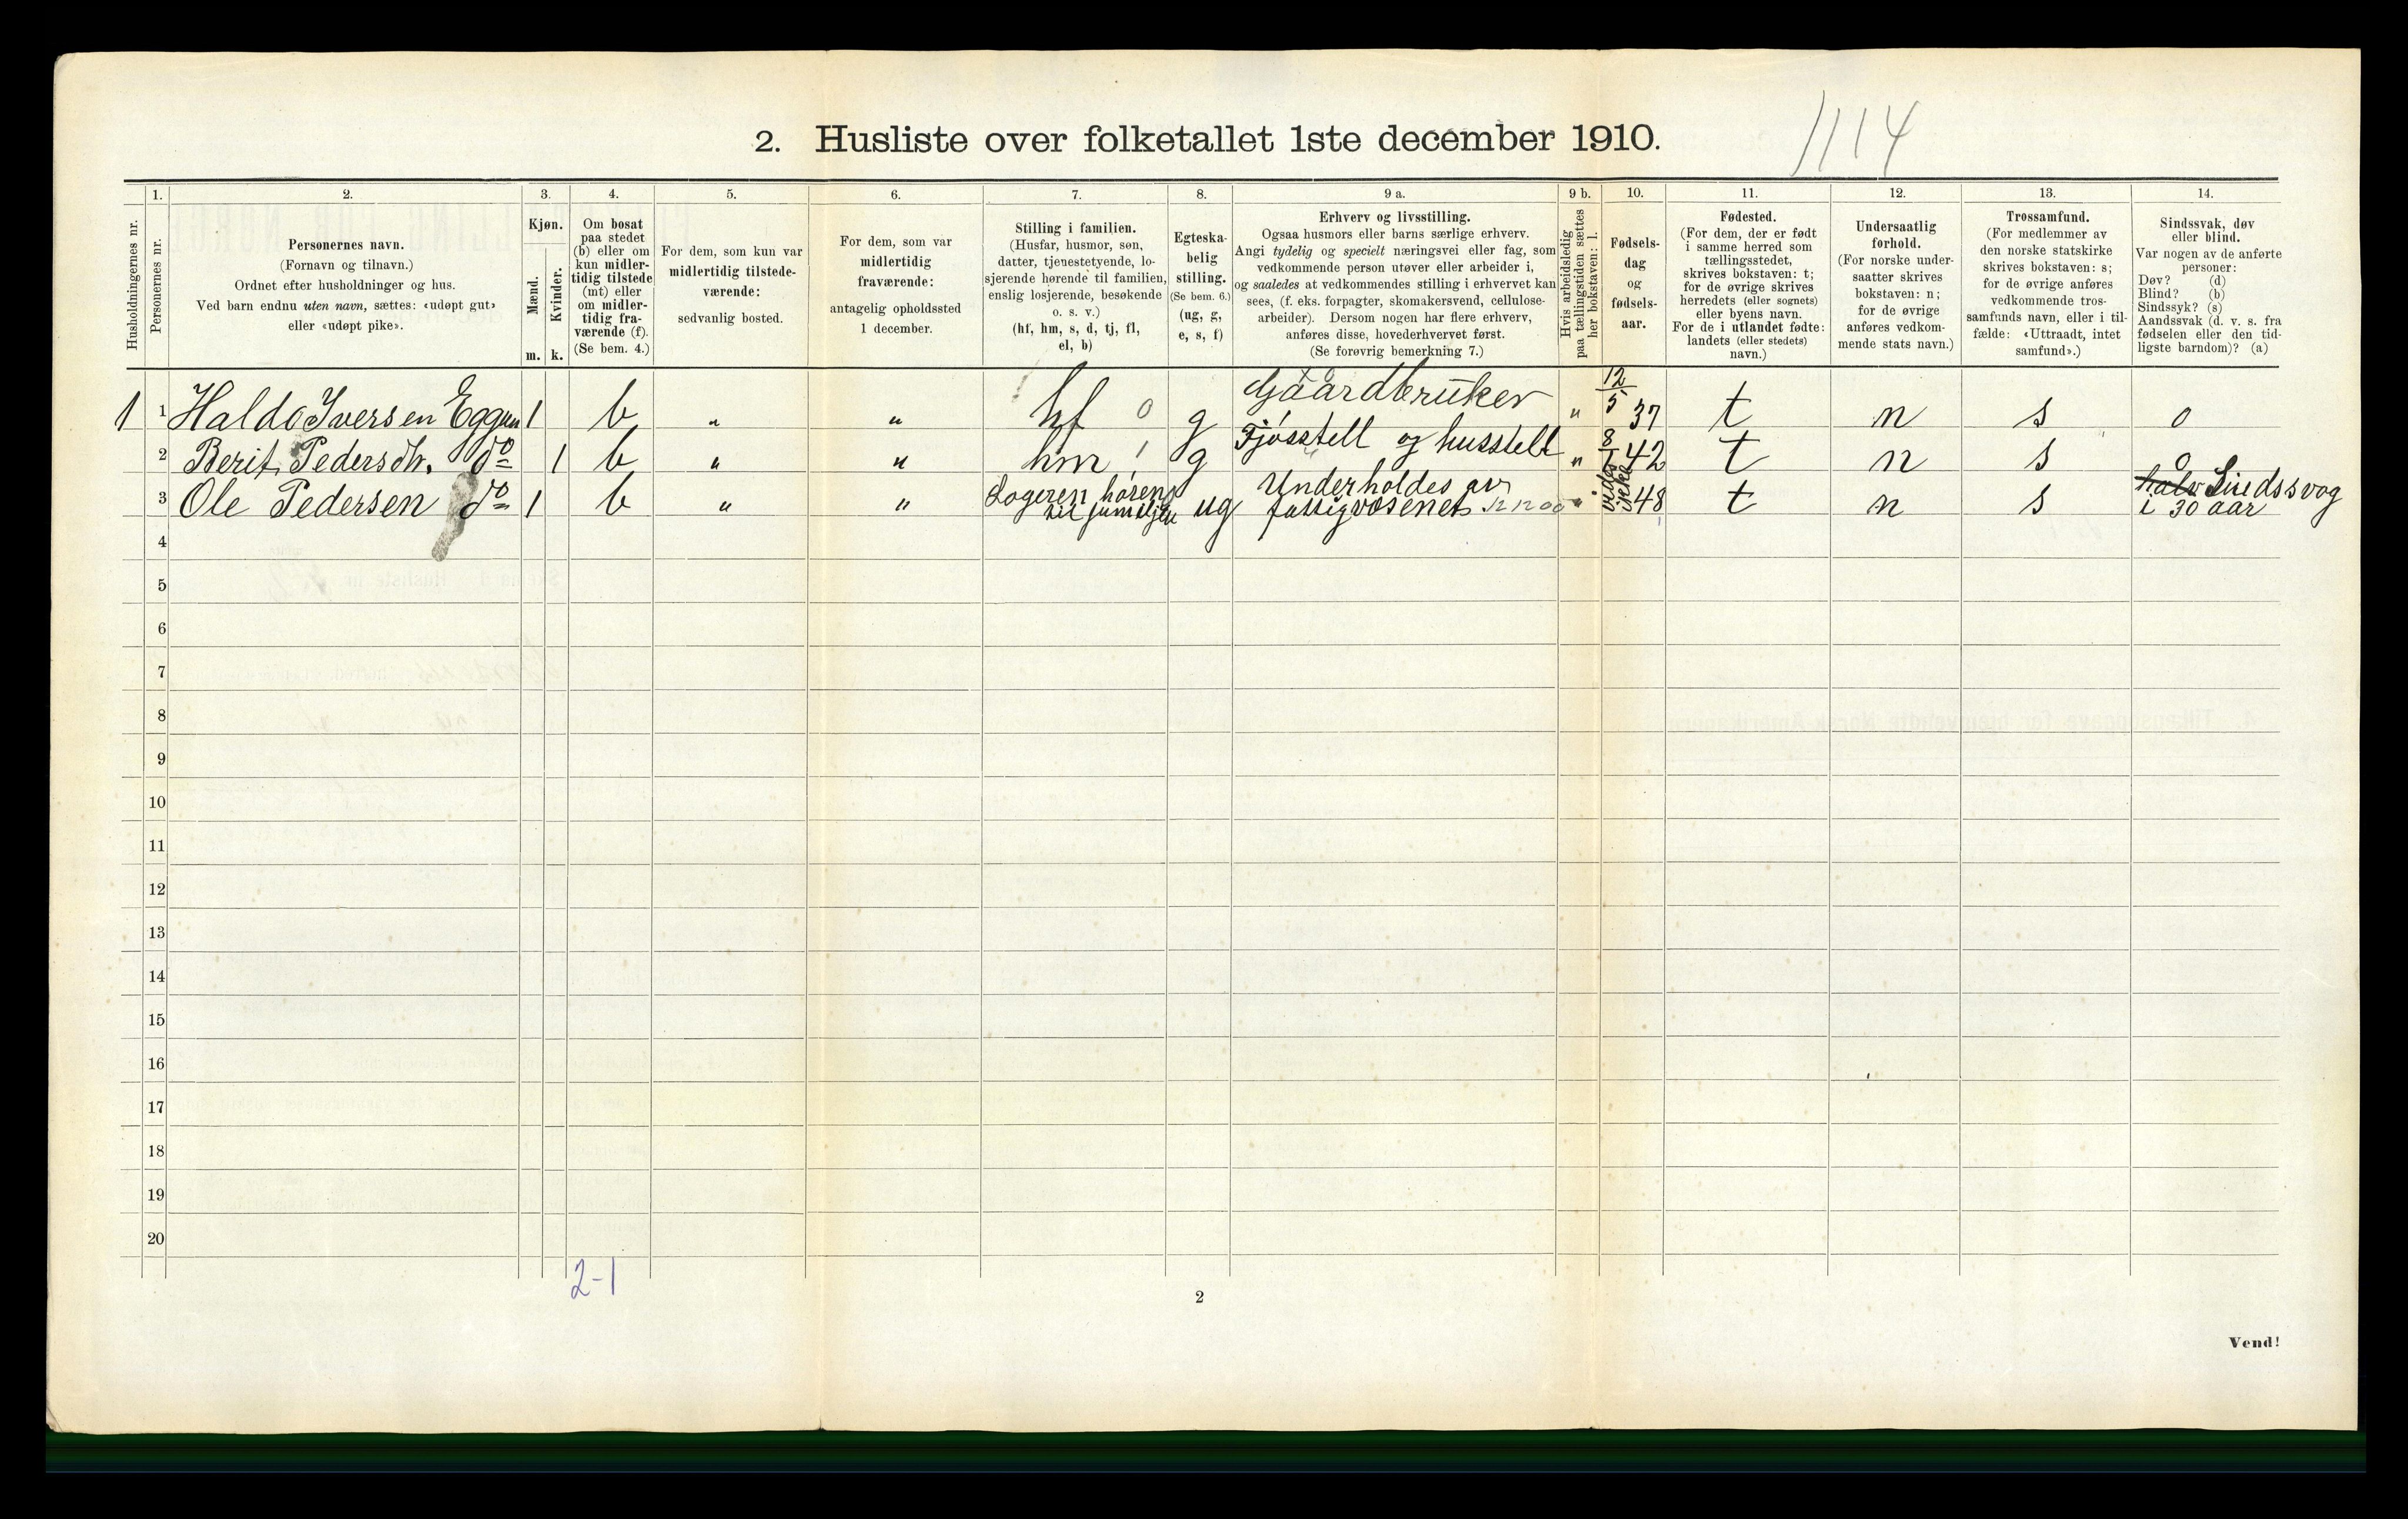 2. Husliste over folketallet 1ste december 1910.
1114
Husholdningernes nr.
1.
Personernes nr.
2.
Personernes navn.
(Fornavn og tilnavn.)
Ordnet efter husholdninger og hus.
Ved barn endnu uten navn, sættes: «udøpt gut»
eller «udøpt pike».
3.
Kjøn.
Mænd.
Kvinder.
m. k.
4.
Om bosat
paa stedet
(b) eller om
kun midler-
tidig tilstede
(mt) eller
om midler-
tidig fra-
værende (f).
(Se bem. 4.)
5.
For dem, som kun var
midlertidig tilstede-
værende:
sedvanlig bosted.
6.
For dem, som var
midlertidig
fraværende:
antagelig opholdssted
1 december.
7.
Stilling i familien.
(Husfar, husmor, søn,
datter, tjenestetyende, lo-
sjerende hørende til familien,
enslig losjerende, besøkende
o. s. v.)
(hf, hm, s, d, tj, fl,
el, b)
8.
Egteska-
belig
stilling.
(Se bem. 6.)
(ug, g,
e, s, f)
9 a.
Erhverv og livsstilling.
Ogsaa husmors eller barns særlige erhverv.
Angi tydelig og specielt næringsvei eller fag, som
vedkommende person utøver eller arbeider i,
og saaledes at vedkommendes stilling i erhvervet kan
sees, (f. eks. forpagter, skomakersvend, cellulose-
arbeider). Dersom nogen har flere erhverv,
anføres disse, hovederhvervet først.
(Se forøvrig bemerkning 7.)
9 b.
Hvis arbeidsledig
paa tællingstiden sættes
her bokstaven: l.
10.
Fødsels-
dag
og
fødsels-
aar.
11.
Fødested.
(For dem, der er født
i samme herred som
tællingsstedet,
skrives bokstaven: t;
for de øvrige skrives
herredets (eller sognets)
eller byens navn.
For de i utlandet fødte:
landets (eller stedets)
navn.)
12.
Undersaatlig
forhold.
(For norske under-
saatter skrives
bokstaven: n;
for de øvrige
anføres vedkom-
mende stats navn.)
13.
Trossamfund.
(For medlemmer av
den norske statskirke
skrives bokstaven: s;
for de øvrige anføres
vedkommende tros-
samfunds navn, eller i til-
fælde: «Uttraadt, intet
samfund».)
14.
Sindssvak, døv
eller blind.
Var nogen av de anførte
personer:
Døv? (d)
Blind? (b)
Sindssyk? (s)
Aandssvak (d. v. s. fra
fødselen eller den tid-
ligste barndom)? (a)
1 1 Haldo Iversen Eggen 1 b " " hf 0 g Gaardbruker " 12/5 37 t n s 0
2 Berit Pedersdtr. do 1 b " " hm g Fjøsstell og husstell " 8 42 t n s 0
3 Ole Pedersen do 1 b " " Logeren hørend til familjen ug Underholdes av fattigvæsenet " 48 t n s halv Sindssvag i 30 aar
4
5
6
7
8
9
10
11
12
13
14
15
16
17
18
19
20
2-1
2
Vend!